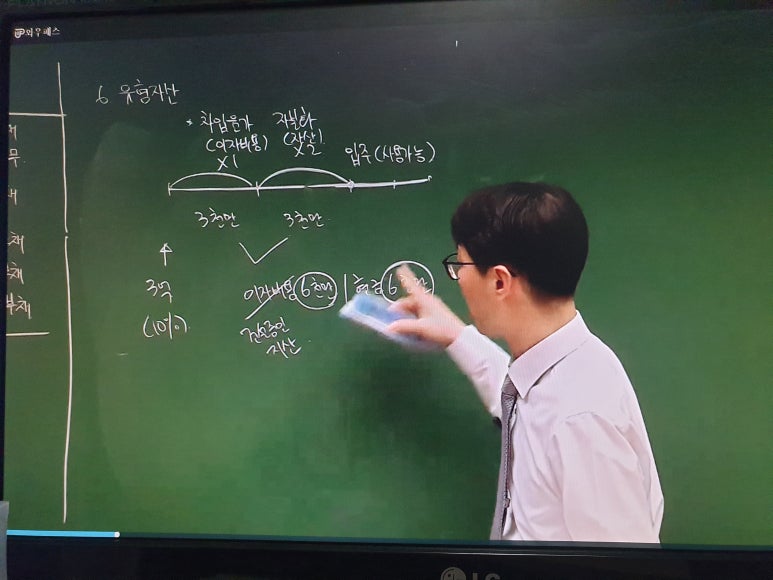 와우패스
6 유형자산
* 차입원가
(이자비용)
X1
자본화
(자산)
X2
입주(사용가능)
3천만 3천만
3억
(10%)
이자비용 6천만 | 현금 6천만
건설중인
자산
채
무
채
채
부채
LG